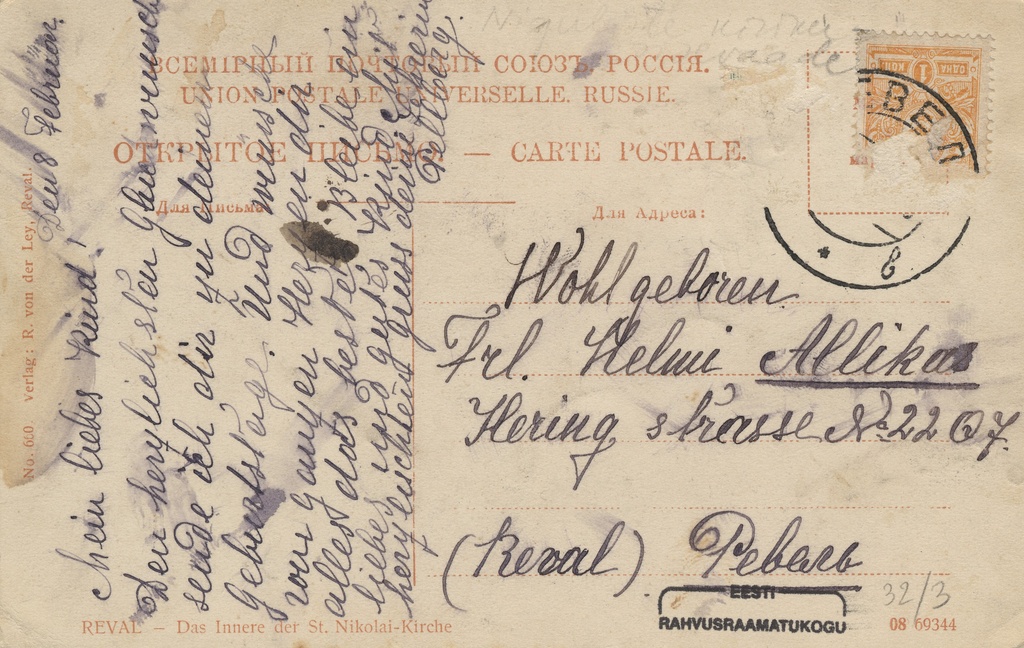 ВСЕМІРНЫЙ ПОЧТОВЫЙ СОЮЗЪ. РОССІЯ.
UNION POSTALE UNIVERSELLE. RUSSIE.
ОТКРЫТОЕ ПИСЬМО — CARTE POSTALE.
Для Письма
Для Адреса:
ОДНА 1 КОП
РЕВЕЛ
8
Den 8 Februar.
Mein liebes Kind!
Den herzlichsten Glückwunsch
sende ich dir zu deinem
Geburtstage. Und wünsche
von ganzen Herzen dir
alles das beste. Bleibe ein
liebes und gutes Kind. Es
herzlichted grüss deine
Wohlgeboren
Frl. Helmi Allikas
Hering strasse № 22 Q 7.
(Reval) Ревель
EESTI
RAHVUSRAAMATUKOGU
32/3
08 69344
REVAL – Das Innere der St. Nikolai-Kirche
No. 660. Verlag: R. von der Ley, Reval.